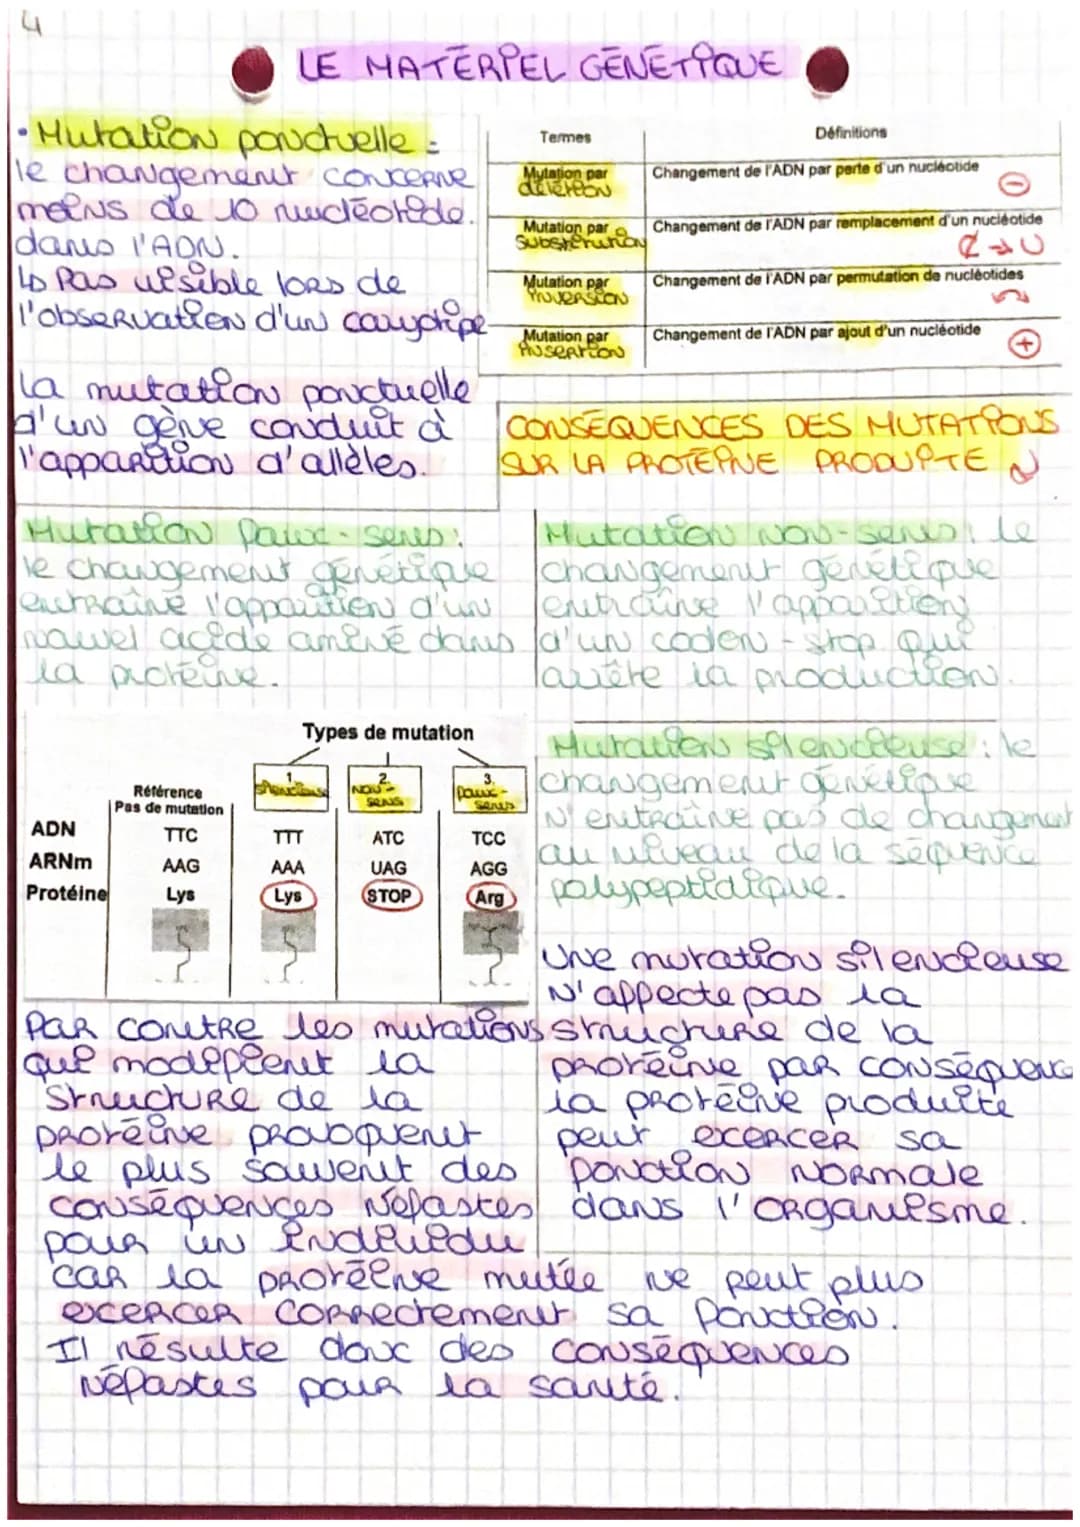 4
LE MATÉRIEL GÉNÉTIQUE
• Mutation ponctuelle :
le changement concerne
moins de 10 nucléotide.
dans l'ADN.
↳ Pas visible lors de
l'observation d'un caryotipe
La mutation ponctuelle
d'un gène conduit à
l'apparition d'allèles.
Termes Définitions
Mutation par délétion Changement de l'ADN par perte d'un nucléotide ⊖
Mutation par substitution Changement de l'ADN par remplacement d'un nucléotide
→ U
Mutation par inversion Changement de l'ADN par permutation de nucléotides
Mutation par insertion Changement de l'ADN par ajout d'un nucléotide ⊕
CONSÉQUENCES DES MUTATIONS
SUR LA PROTÉINE PRODUITE
Mutation faux-sens :
le changement génétique
entraîne l'apparition d'un
nouvel acide aminé dans
la protéine.
Mutation non-sens : le
changement génétique
entraîne l'apparition
d'un codon-stop qui
arrête la production.
Types de mutation
Référence
Pas de mutation
1. silencieuse
2. NON-sens
3. faux-sens
ADN TTC TTT ATC TCC
ARNm AAG AAA UAG AGG
Protéine Lys Lys STOP Arg
Mutation silencieuse : le
changement génétique
n'entraîne pas de changement
au niveau de la séquence
polypeptidique.
Une mutation silencieuse
n'affecte pas la
structure de la
protéine par conséquence
la protéine produite
peut exercer sa
fonction normale
dans l'organisme.
Par contre les mutations
qui modifient la
structure de la
protéine provoquent
le plus souvent des
conséquences néfastes
pour un individu
car la protéine mutée ne peut plus
exercer correctement sa fonction.
Il résulte donc des conséquences
néfastes pour la santé.